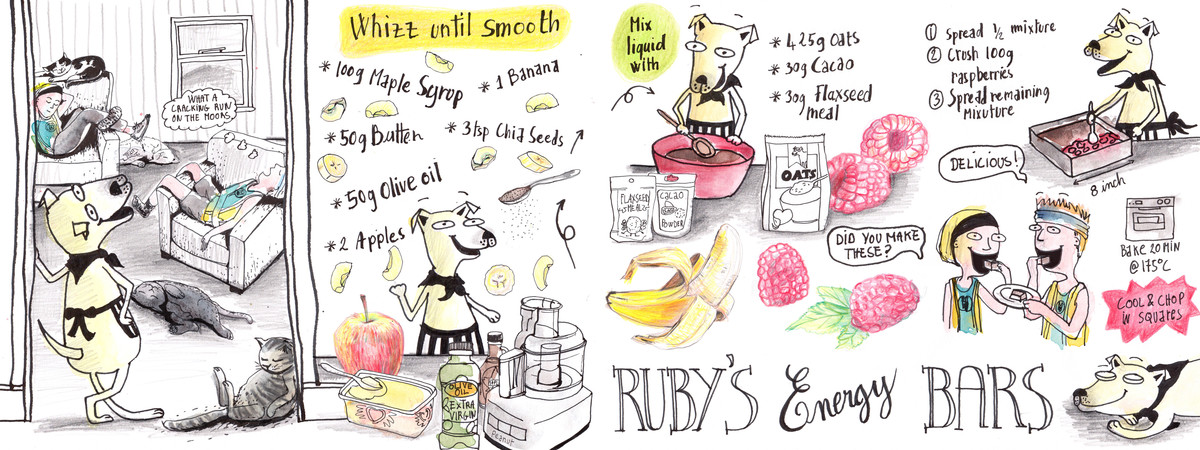 WHAT A
CRACKING RUN
ON THE MOORS
Whizz until smooth
* 100g Maple Syrop
* 1 Banana
* 50g Butter
* 3 tsp Chia Seeds
* 50g Olive oil
* 2 Apples
OLIVE
OIL
EXTRA
VIRGIN
Peanut
Mix
liquid
with
* 425g Oats
* 30g Cacao
* 30g Flaxseed
meal
FLAXSEED
MEAL
CACAO
POWDER
OATS
① Spread ½ mixture
② Crush 100g
raspberries
③ Spread remaining
Mixuture
8 inch
DELICIOUS!
DID YOU MAKE
THESE?
BAKE 20 MIN
@ 175°C
COOL & CHOP
IN SQUARES
RUBY'S Energy BARS